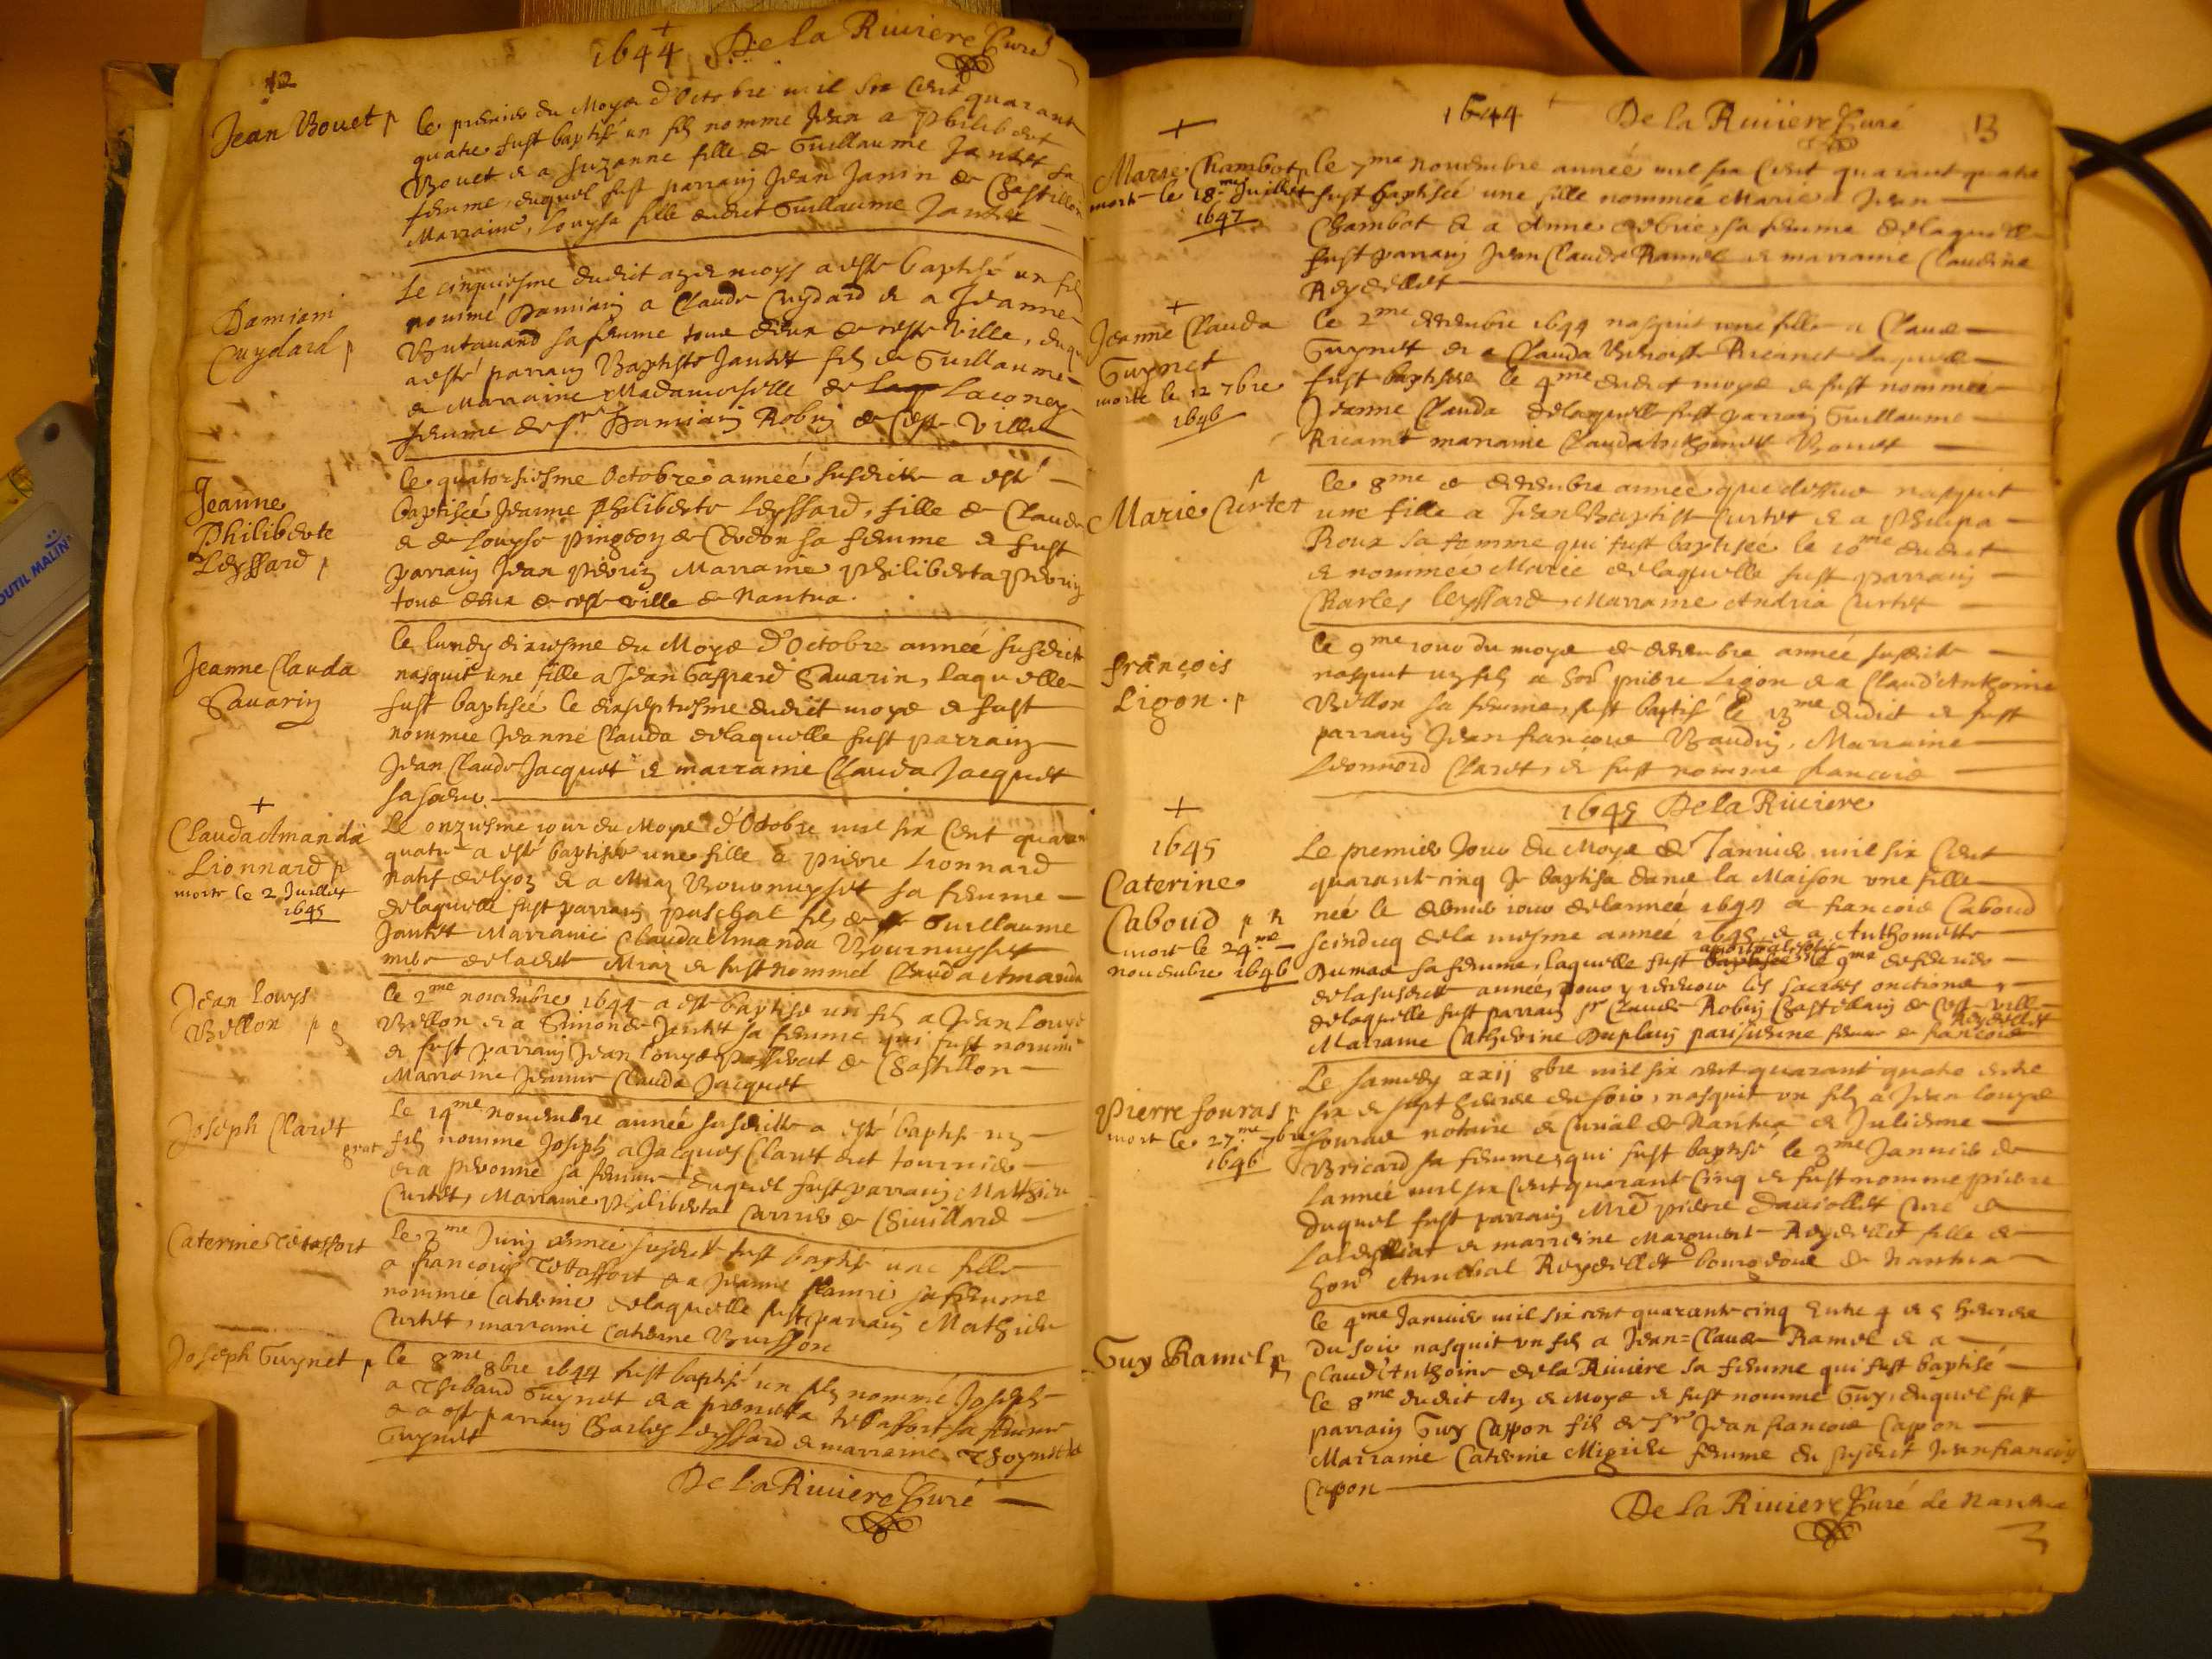 12
1644 De la Riuiere Curé
Jean Bouet p
Le premier du Moys d'Octobre mil six Cent quarant
quatre fust baptisé un fils nommé Jean a Philibert
Bouet et a Suzanne fille de Guillaume Jantet sa
femme, duquel fust parrain Jean Janin de Chastillon
Marraine, Louysa fille dudict Guillaume Jantet
Damiani
Cuydard p
Le cinquiesme dudict an et moys a esté baptisé un fils
nommé Damiani a Claude Cuydard et a Jeanne
Butauand sa femme tous deux de ceste Ville, duq
a esté parrain Baptiste Jantet fils de Guillaume
et Marraine Madamoiselle de Laconay
femme de Sr Damiani Robin de Ceste Ville
Jeanne
Philiberte
Leyssard p
Le quatorsiesme Octobre année susdicte a esté
baptisée Jeanne Philiberte Leyssard, fille de Claude
et de Louyse Pingeon de Cerdon sa femme et fust
parrain Jean Perrin Marraine Philiberta Perrin
tous deux de ceste ville de Nantua.
Jeanne Clauda
Sauarin
Le lundy dixiesme du Moys d'Octobre année susdicte
nasquit une fille a Jean Gaspard Sauarin, laquelle
fust baptisée le dixseptiesme dudict moys et fust
nommée Jeanne Clauda de laquelle fust parrain
Jean Claude Jacquet et marraine Clauda Jacquet
sa soeur
Clauda Amanda
Lionnard p
morte le 2 Juillet
1645
Le onziesme iour du Moys d'Octobre mil six Cent quaran
quatre a esté baptisée une fille a Pierre Lionnard
natif de Lyon et a Miaz Bouonuyset sa femme
de laquelle fust parrain Paschal fils de Guillaume
Jantet Marraine Clauda Amanda Bournuyset
mere de ladicte Miaz et fust nommée Clauda Amanda
Jean Louys
Billon p g
Le 2me nouembre 1644 a esté baptisé un fils a Jean Louys
Billon et a Simonde Jantet sa femme qui fust nommé
et fust parrain Jean Louys Passerat de Chastillon
Marraine Jeanne Clauda Jacquet
Joseph Claret
grat
Le 14me nouembre année susdicte a esté baptisé un
fils nommé Joseph a Jacques Claret dict tournier
et a Peronne sa femme duquel fust parrain Mathieu
Curtet, Marraine Philiberta Carrier de Chiuillard
Caterine Tetaffort
Le 3me Juin année susdicte fust baptisé une fille
a françois Tetaffort et a Jeanne sa femme
nommée Catherine de laquelle fust parrain Mathieu
Curtet, marraine Caterine Brisson
Joseph Guynet p
Le 8me 8bre 1644 fust baptisé un fils nommé Joseph
a Thibaud Guynet et a pernetta tetaffort sa femme
et a esté parrain Charles Leyssard et marraine Thoynette
Guynet
De la Riuiere Curé
1644 De la Riuiere Curé 13
Marie Chambot p
morte le 18me Juillet
1647
Le 7me nouembre année mil six Cent quarant quatre
fust baptisée une fille nommée Marie a Jean
Chambot et a Anne sa femme de laquelle
fust parrain Jean Claude Ramel et marraine Claudine
Reydellet
Jeanne Clauda
Guynet
morte le 12 7bre
1646
Le 2me decembre 1644 nasquit une fille a Claude
Guynet et a Clauda Ricanet laquelle
fust baptisée le 4me dudict moys et fust nommée
Jeanne Clauda de laquelle fust parrain Guillaume
Ricanet marraine Clauda Bouet
Marie Curtet p
Le 8me de decembre année que dessus nasquit
une fille a Jean Baptiste Curtet et a Philipa
Roux sa femme qui fust baptisée le 10me dudict
et nommée Marie de laquelle fust parrain
Charles Leyssard, Marraine Andria Curtet
françois
Ligon. p
Le 9me iour du moys de decembre année susdicte
nasquit un fils a hon. pierre Ligon et a Claud'Anthoine
Billon sa femme, fust baptisé le 13me dudict et fust
parrain Jean francois Baudin, Marraine
Leonnord Claret, et fust nommé francois
1645 De la Riuiere
1645
Caterine
Caboud p
mort le 24me
nouembre 1646
Le premier Jour du Moys de Januier mil six Cent
quarant cinq Je baptisa dans la Maison une fille
née le dernier iour de l'année 1644 a francois Caboud
scindicq de la mesme année 1645 et a Anthoinette
Dumas sa femme, laquelle fust le 9me de feurier
de la susdicte année, pour y receuoir les sacrées onctions
de laquelle fust parrain Sr Claude Robin Chastellain de Ceste ville
Marraine Catherine Duplain parisienne femme de francois
Reydellet
Pierre fouras p
mort le 27me 7bre
1646
Le samedy xxij 8bre mil six cent quarant quatre entre
six et sept heures du soir, nasquit un fils a Jean Louys
fouras notaire et Curial de Nantua et Julienne
Bricard sa femme, qui fust baptisé le 3me Januier de
l'année mil six Cent quarant Cinq et fust nommé pierre
duquel fust parrain Mre pierre Dauiollet Curé de
Laleyriat et marraine Marguerit Reydellet fille de
hon. Annibal Reydellet bourgeois de Nantua
Guy Ramel p
Le 4me Januier mil six cent quarant cinq Entre 4 et 5 heures
du soir nasquit un fils a Jean=Claude Ramel et a
Claud'Anthoine de la Riuiere sa femme qui fust baptisé
Le 8me dudict An et Moys et fust nommé Guy, duquel fust
parrain Guy Cappon fils de Sr Jean francois Cappon
Marraine Caterine Migieu femme du susdict Jean francois
Capon
De la Riuiere Curé de Nantua
OUTIL MALIN